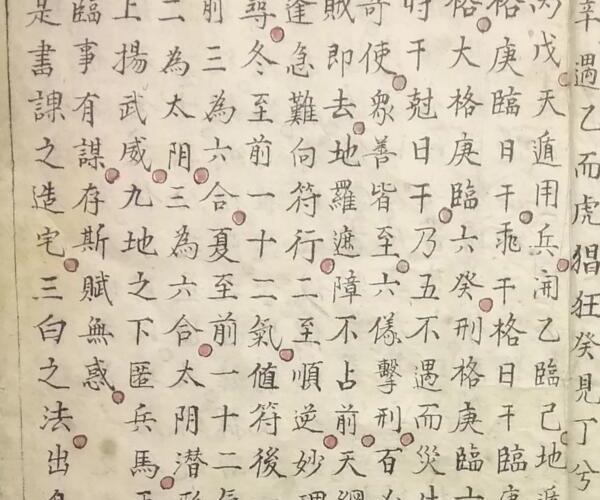 辛遇乙而虎猖狂癸見丁兮
戊天遁用兵開乙臨己地遁
格庚臨日干乖干格日干臨庚
格大格庚臨六癸刑格庚臨六
時干尅日干乃五不遇而災生
奇使衆善皆至六儀擊刑百
賊即去地羅遮障不占前天網
逢急難向符行二至順逆妙理
尋冬至前一十二氣值符後
前三為六合夏至前一十二氣
二為太阴三為六合太阴潜形
上揚武威九地之下匿兵馬
臨事有謀存斯賦無惑
是書課之造宅三白之法出